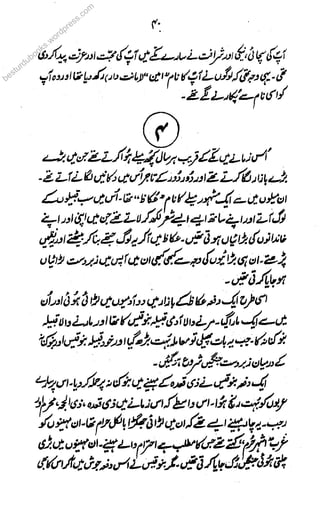 ۴۰
besturdubooks.wordpress.com
آپ کی سچائی، نیکی اور شرافت نے سارے مکے میں آپ کی محبت اور عزت پیدا کر دی
تھی۔ یہی وجہ تھی کہ لوگوں نے آپ کا نام "امین" (امانت دار) رکھ دیا تھا اور وہ آپ
کو اسی نام سے پکارنے لگے تھے۔
۴
اُس زمانے میں مکے کے قریب ہر سال کچھ میلے ہوا کرتے تھے جن میں بڑے
بڑے بازار لگا کرتے تھے اور دُور دُور کے تاجر اُس میں دکانیں لگانے آتے تھے۔
ان میلوں میں سے ایک مشہور میلے کا نام "عکاظ" تھا۔ اُس میں سب قبیلوں کے
لوگ آتے اور اپنے ساتھ ایسے ایسے شعر لکھ کر لاتے تھے جن میں اپنی اور اپنے
خاندانوں کی بڑائیاں ہوتی تھیں۔ عکاظ میں آ کر یہ لوگ جتھے بنا کر بیٹھتے اور نظمیں
پڑھتے۔ ان ہی بڑائیوں کی وجہ سے کبھی کبھی ان میں آپس میں زبردست لڑائیاں
ہو جایا کرتی تھیں۔
اسی طرح ایک دفعہ عکاظ کے بازار میں دو آدمیوں میں لڑائی ہوئی اور اُن
میں سے ایک مارا گیا۔ مرنے والا آدمی قبیلہ بنو قیس کا تھا اور مارنے والا قبیلہ
بنو کنانہ کا۔ جب یہ بات پھیلی تو معاملہ بہت بڑھ گیا اور خود قبیلہ بنو قیس اور بنو کنانہ
کے درمیان زبردست جنگیں شروع ہو گئیں۔
ایک دفعہ بنو قیس نے ذی قعدہ کے مہینے میں بنو کنانہ پر حملہ کر دیا۔ اس پر سارے
عربوں کو بہت رنج ہوا۔ اس واسطے کہ اس زمانے میں ذی قعدہ، ذی الحجہ، محرم اور
رجب۔ یہ چار مہینے ایسے تھے کہ ان میں لڑائی جھگڑا بالکل حرام تھا۔ ان مہینوں کو
عرب "اشہر حرم" کہتے تھے جس کا مطلب ہے احترام والے مہینے۔ ان مہینوں میں بڑی
چلتی ہوئی جنگیں رُک جایا کرتی تھیں۔ مگر بنو قیس نے اس دفعہ جوش میں آ کر اس کا بھی